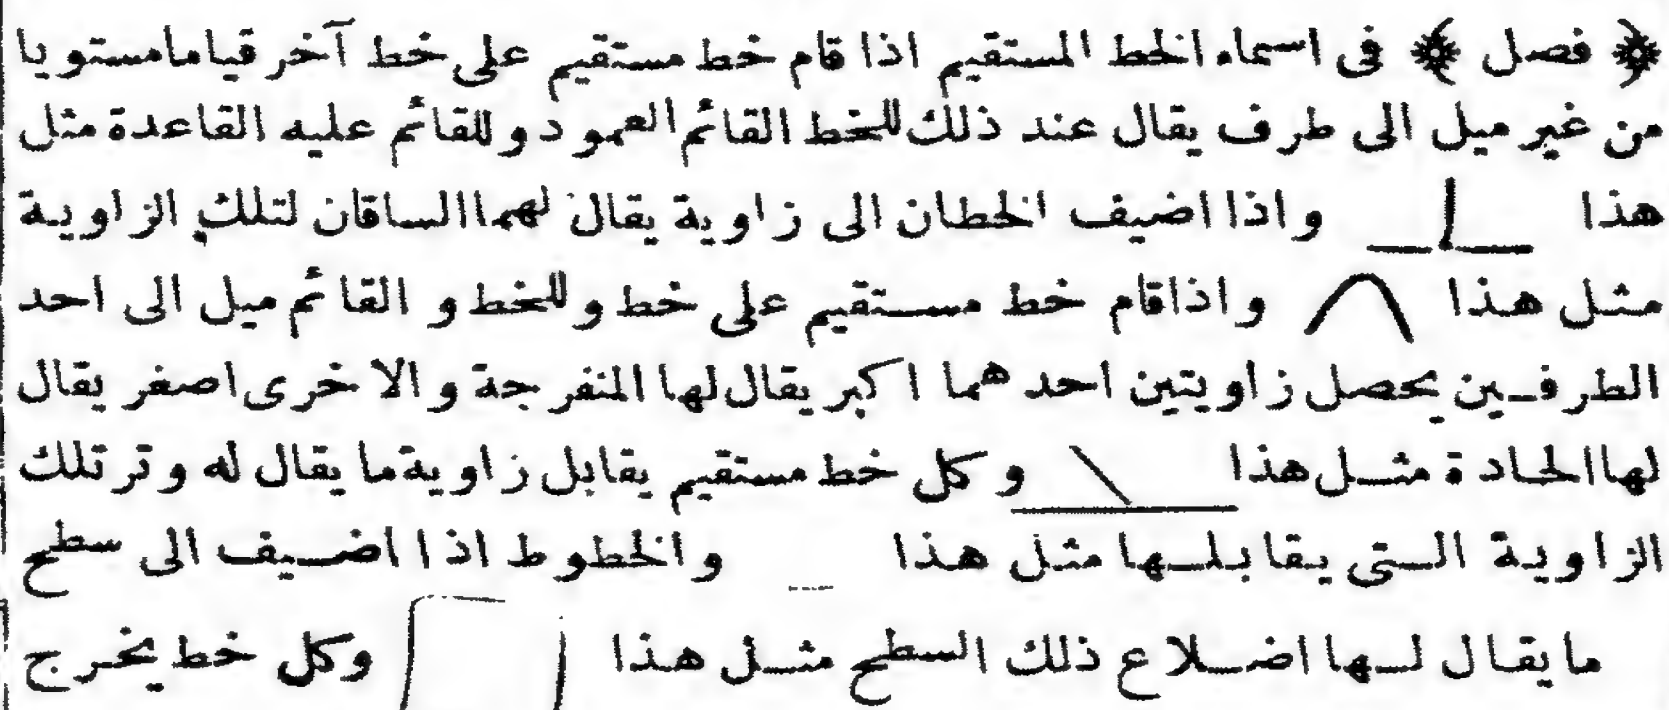 ﴿ فصل ﴾ فى اسماء الخط المستقيم اذا قام خط مستقيم على خط آخر قياما مستويا
من غير ميل الى طرف يقال عند ذلك للخط القائم العمود وللقائم عليه القاعدة مثل
هذا واذا اضيف الخطان الى زاوية يقال لهما الساقان لتلك الزاوية
مثل هذا واذا قام خط مستقيم على خط وللخط و القائم ميل الى احد
الطرفين يحصل زاويتين احدهما اكبر يقال لها المنفرجة والاخرى اصغر يقال
لها الحادة مثل هذا وكل خط مستقيم يقابل زاوية ما يقال له وتر تلك
الزاوية التى يقابلها مثل هذا والخطوط اذا اضيف الى سطح
ما يقال لها اضلاع ذلك السطح مثل هذا وكل خط يخرج